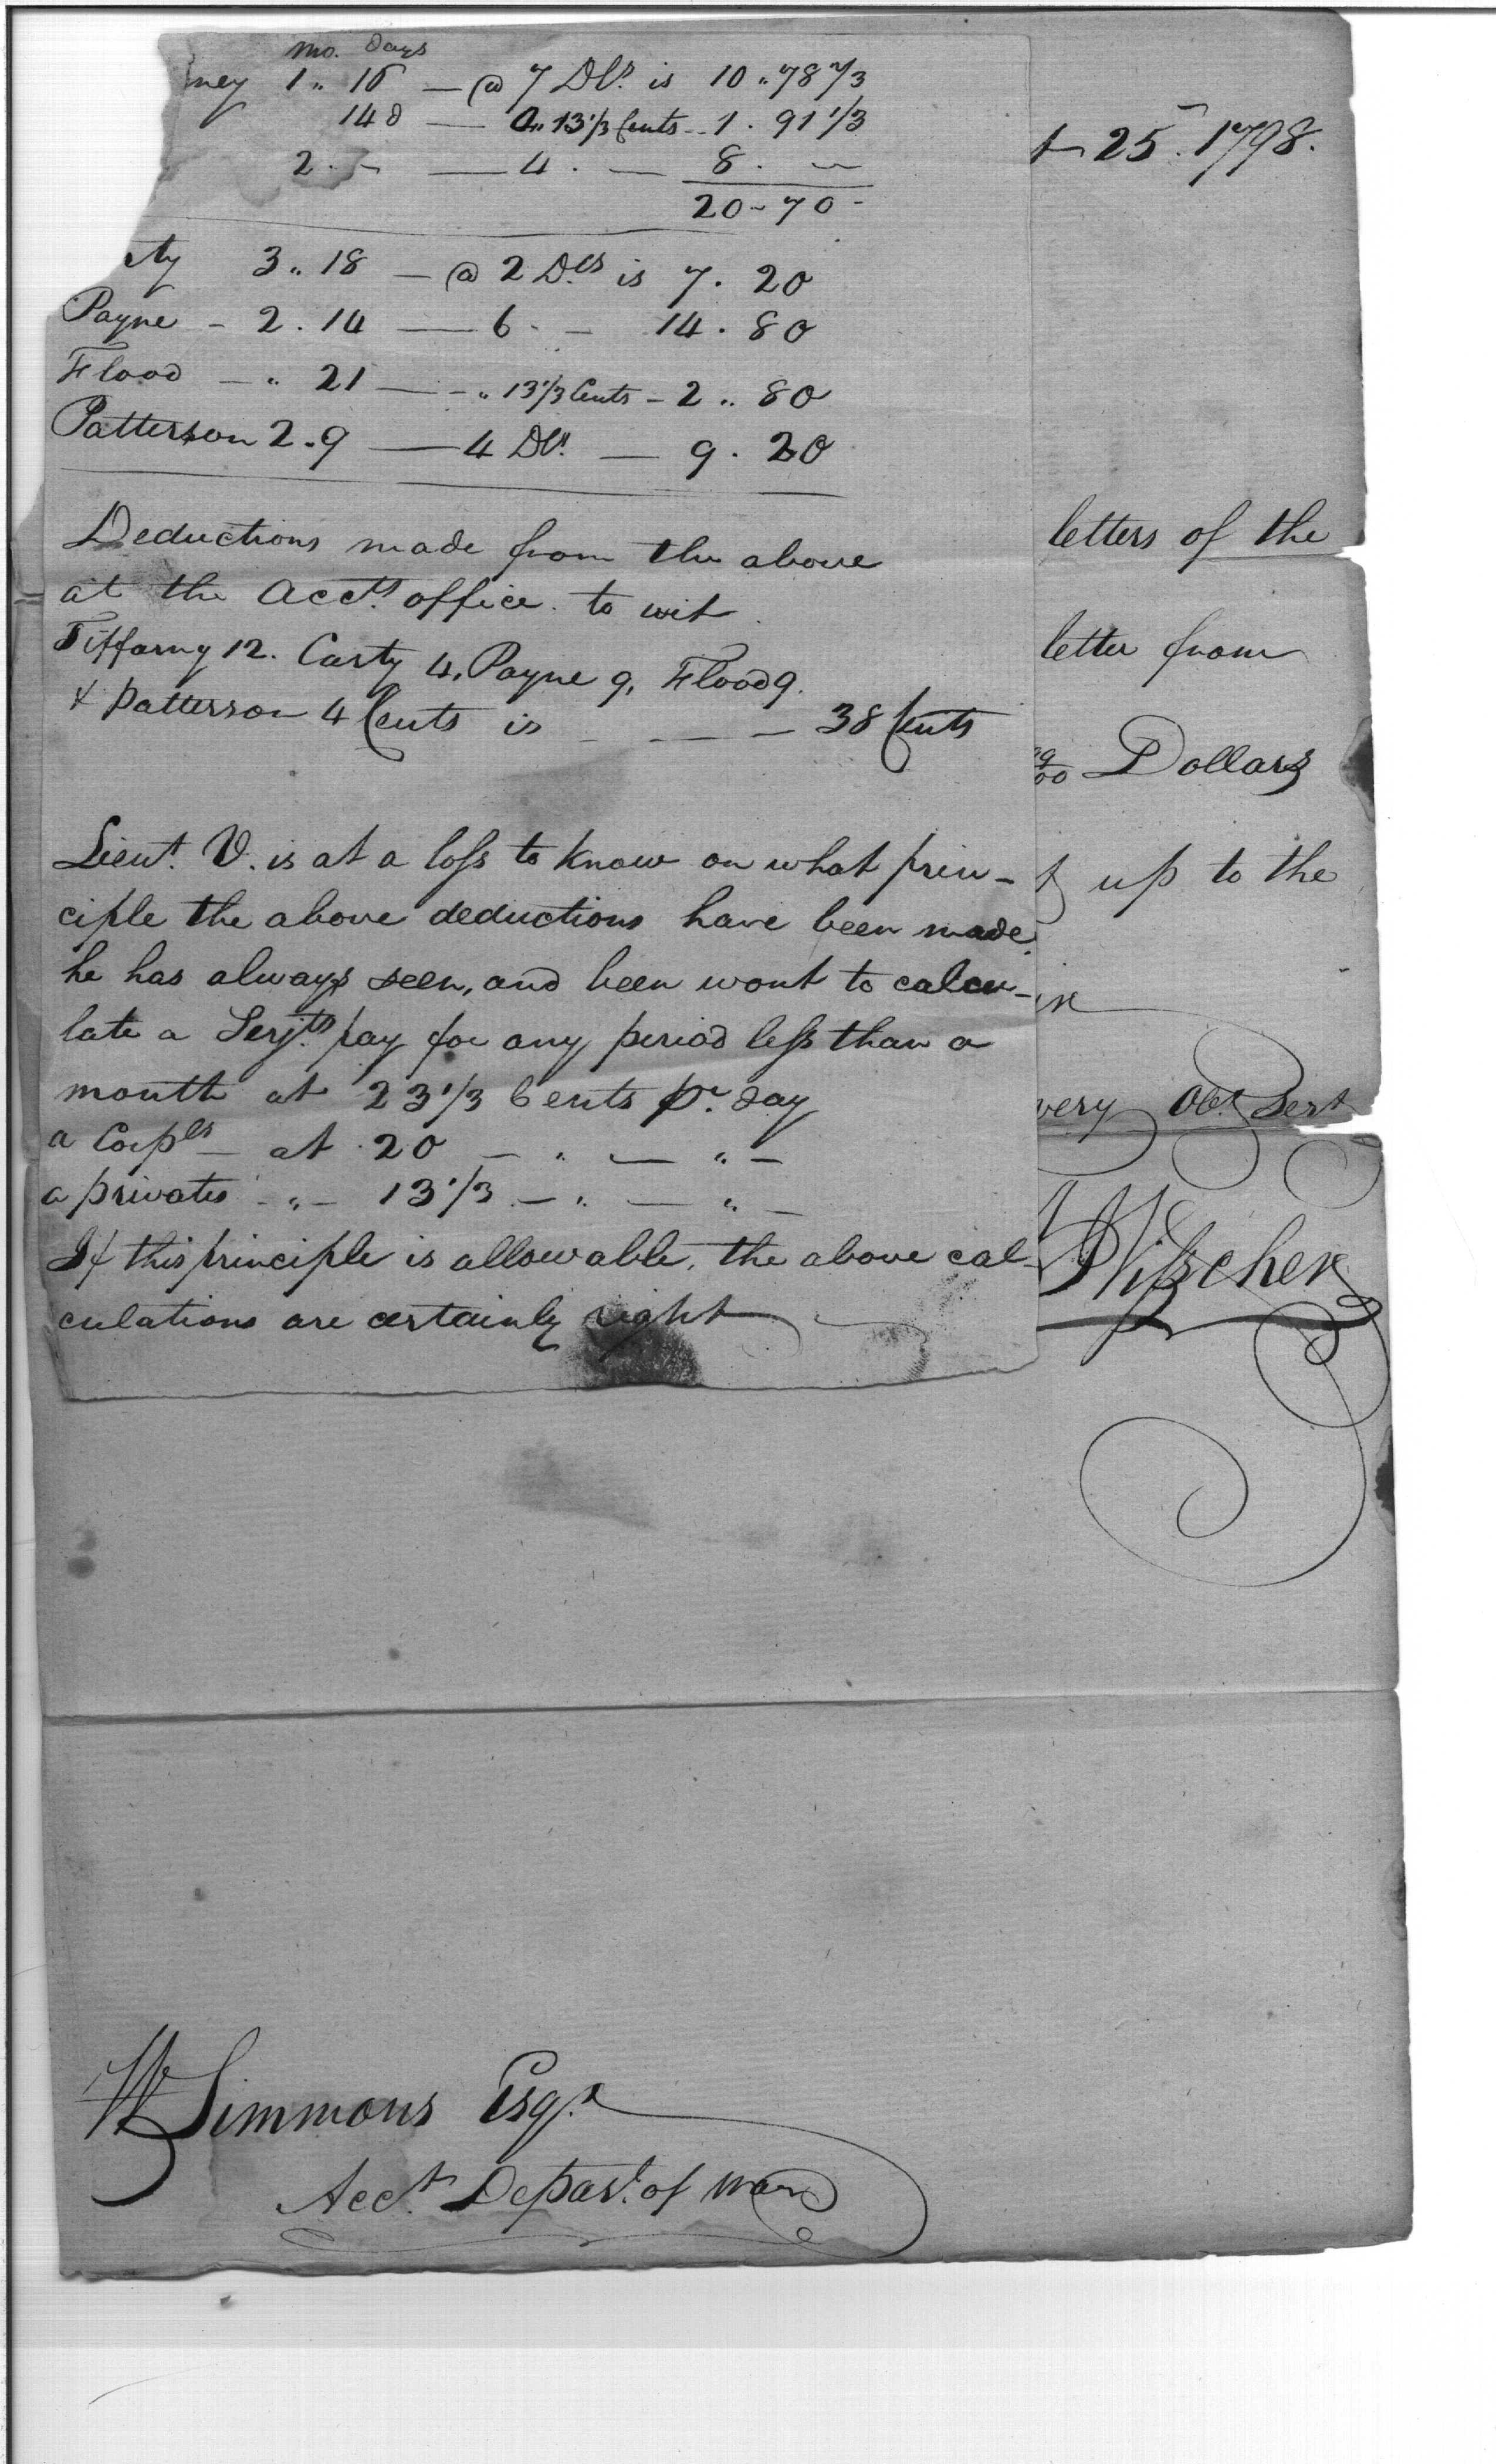 mo. days
ney 1 .. 16 — @ 7 Dls. is 10 .. 78 2/3
14 d — 0 .. 13 1/3 Cents - 1 . 91 1/3
2 . - — 4 . — 8 . —
20 - 70 -
ty 3 .. 18 — @ 2 Dls is 7 . 20
Payne - 2 . 14 — 6 - - 14 . 80
Flood - .. 21 — - .. 13 1/3 Cents - 2 .. 80
Patterson 2 . 9 — 4 Dls. — 9 . 20
Deductions made from the above
at the Accts. office. to wit
Tiffany 12. Carty 4, Payne 9, Flood 9.
& Patterson 4 Cents is - — — 38 Cents
Lieut. V. is at a loss to know on what prin-
ciple the above deductions have been made.
he has always seen, and been wont to calcu-
late a Serjts. pay for any period less than a
month at 23 1/3 Cents pr. day
a Corpls - at 20 - " — " -
a privates - " - 13 1/3 - " — " -
If this principle is allowable, the above cal-
culations are certainly right
25. 1798.
letters of the
letter from
Dollars
up to the
very Obt. Sert
W Simmons Esqr.
Acct. Depart. of War